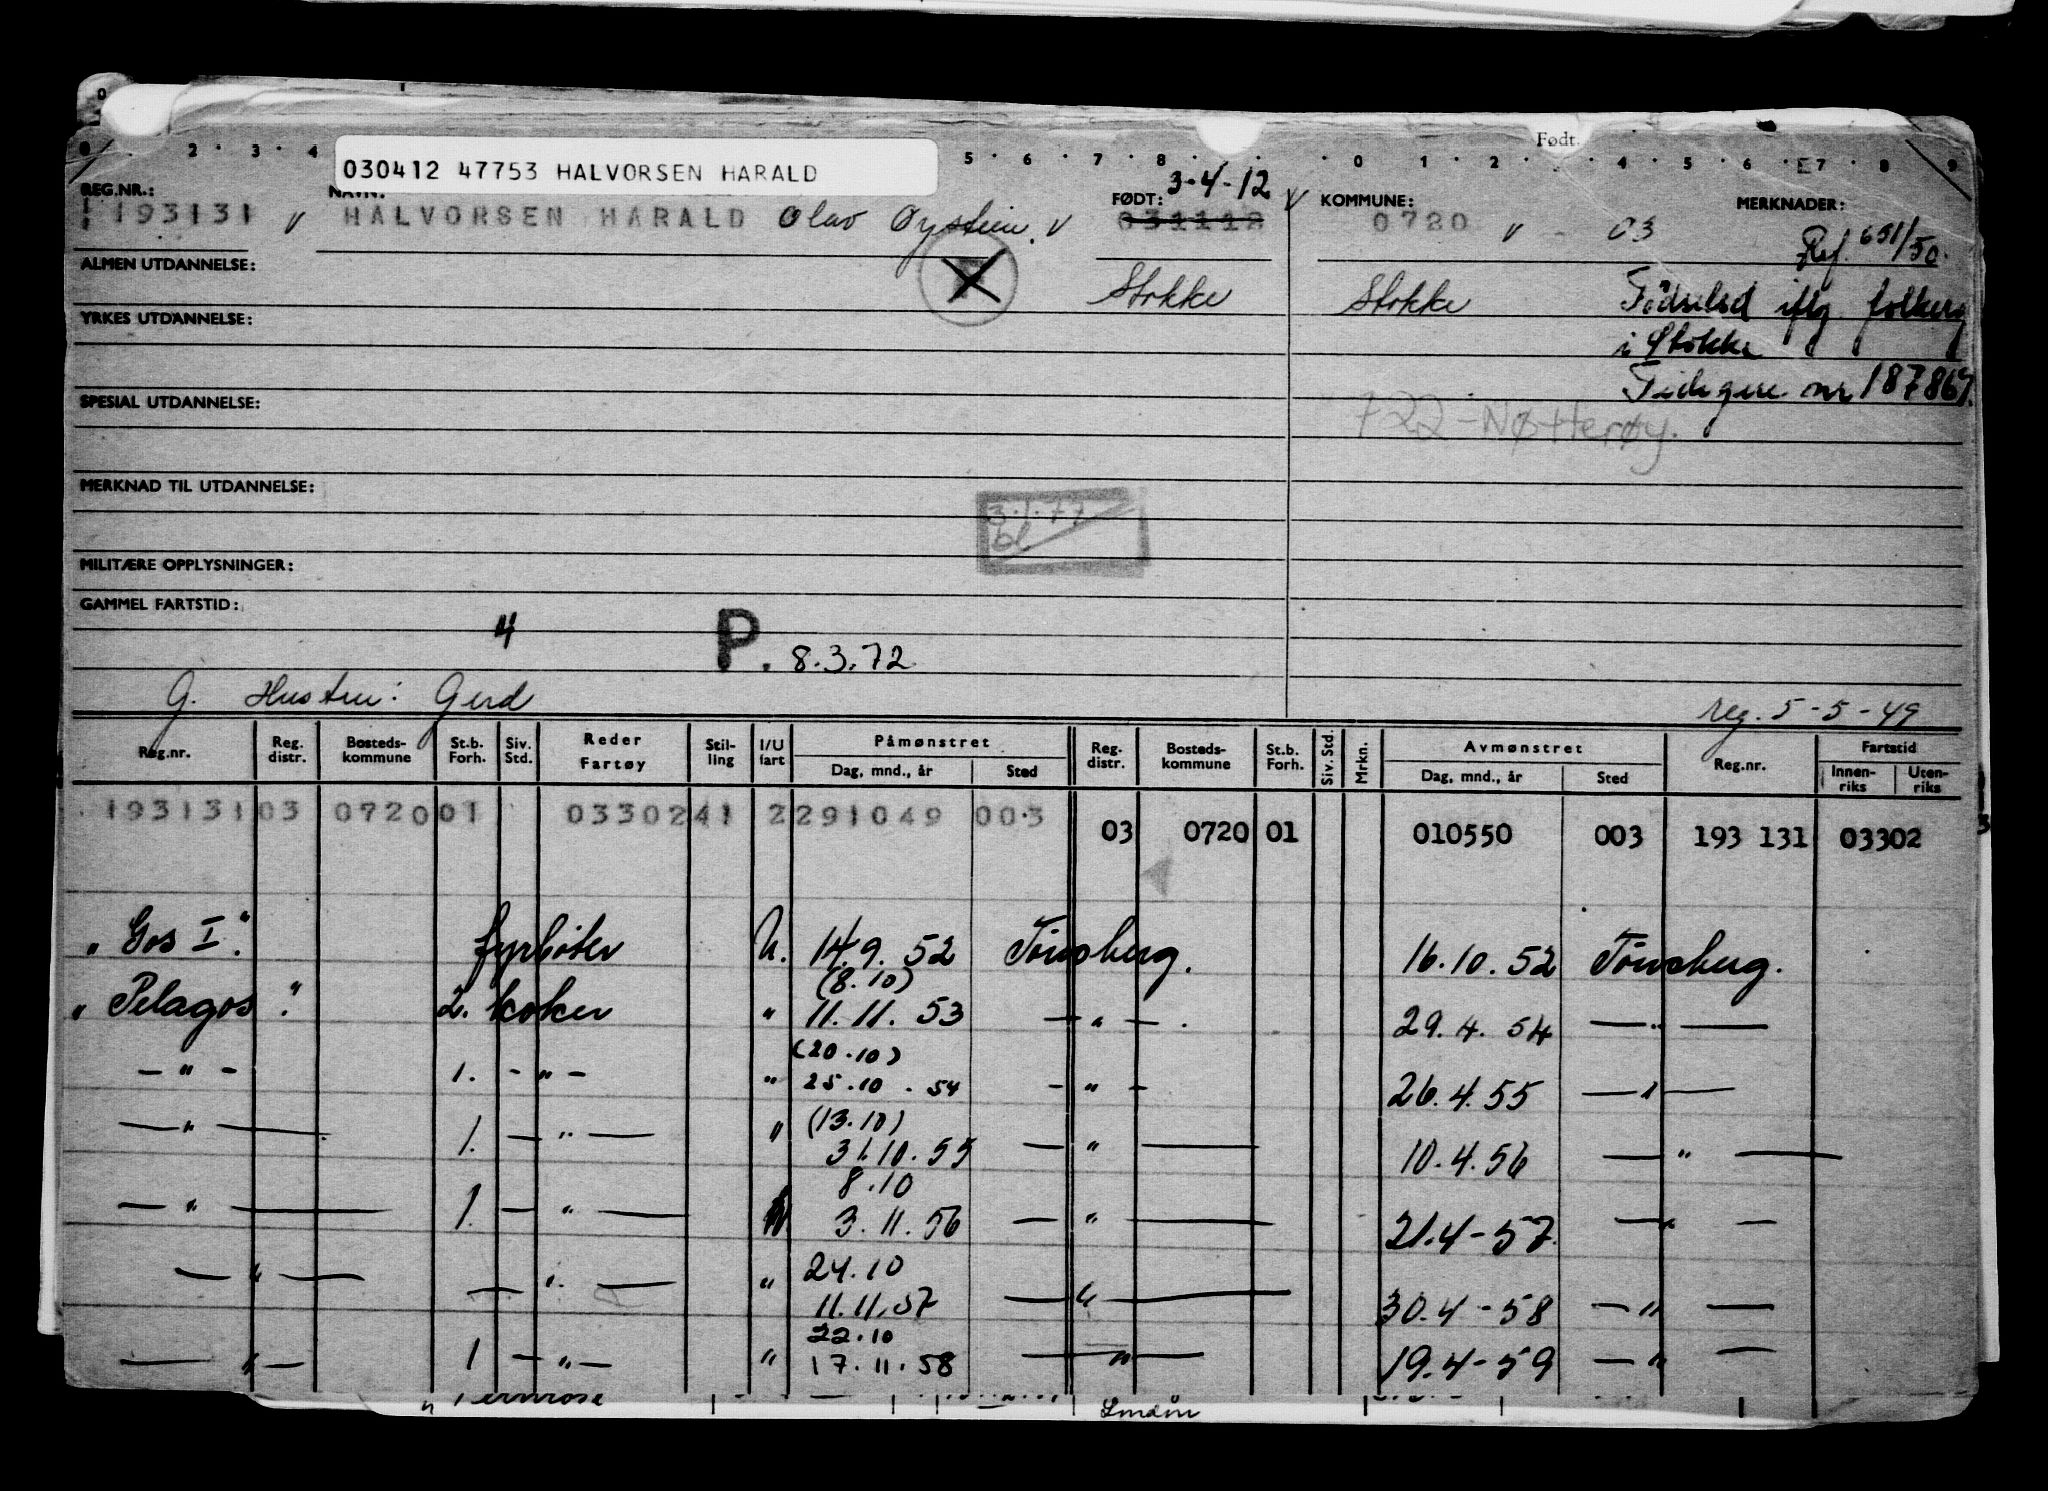 Født.
2 · 3 · 4 5 · 6 · 7 · 8 · · · 0 · 1 · 2 · 4 · 5 · 6 · 7 · 8 · 9
030412 47753 HALVORSEN HARALD
REG.NR.: NAVN: FØDT: 3-4-12 KOMMUNE: MERKNADER:
193131 v HALVORSEN HARALD Olav Øystein. v 031112 v 0720 v 03 Ref. 651/50.
ALMEN UTDANNELSE: Stokke Stokke Födselsd iflg. folkereg
YRKES UTDANNELSE: i Stokke
Tidligere nr 187867.
SPESIAL UTDANNELSE: 722-Nøtterøy.
MERKNAD TIL UTDANNELSE: 3.1.77
bl
MILITÆRE OPPLYSNINGER:
GAMMEL FARTSTID:
4 P. 8.3.72
G. Hustru: Gerd reg. 5-5-49
Reg.nr. Reg. distr. Bosteds-kommune St.b. Forh. Siv. Std. Reder Fartøy Stil-ling I/U fart Påmønstret Dag, mnd., år Sted Reg. distr. Bosteds-kommune St.b. Forh. Siv. Std. Mrkn. Avmønstret Dag, mnd., år Sted Reg.nr. Fartstid Innen-riks Uten-riks
193131 03 0720 01 0330241 2 291049 003 03 0720 01 010550 003 193 131 03302
"Gos I". fyrböter U. 14.9.52 Tönsberg. 16.10.52 Tönsberg.
(8.10)
"Pelagos". 2. koker " 11.11.53 — " — . 29.4.54 — " —
(20.10)
— " — 1. — " — " 25.10.54 — " — 26.4.55 — " —
(13.10)
— " — 1. — " — " 31.10.55 — " — 10.4.56 — " —
8.10
— " — 1. — " — 3.11.56 — " — 21.4-57. — " —
24.10
— " — — " — " 11.11.57 — " — 30.4-58 — " —
22.10
— " — 1 — " — " 17.11.58 — " — 19.4-59 — " —